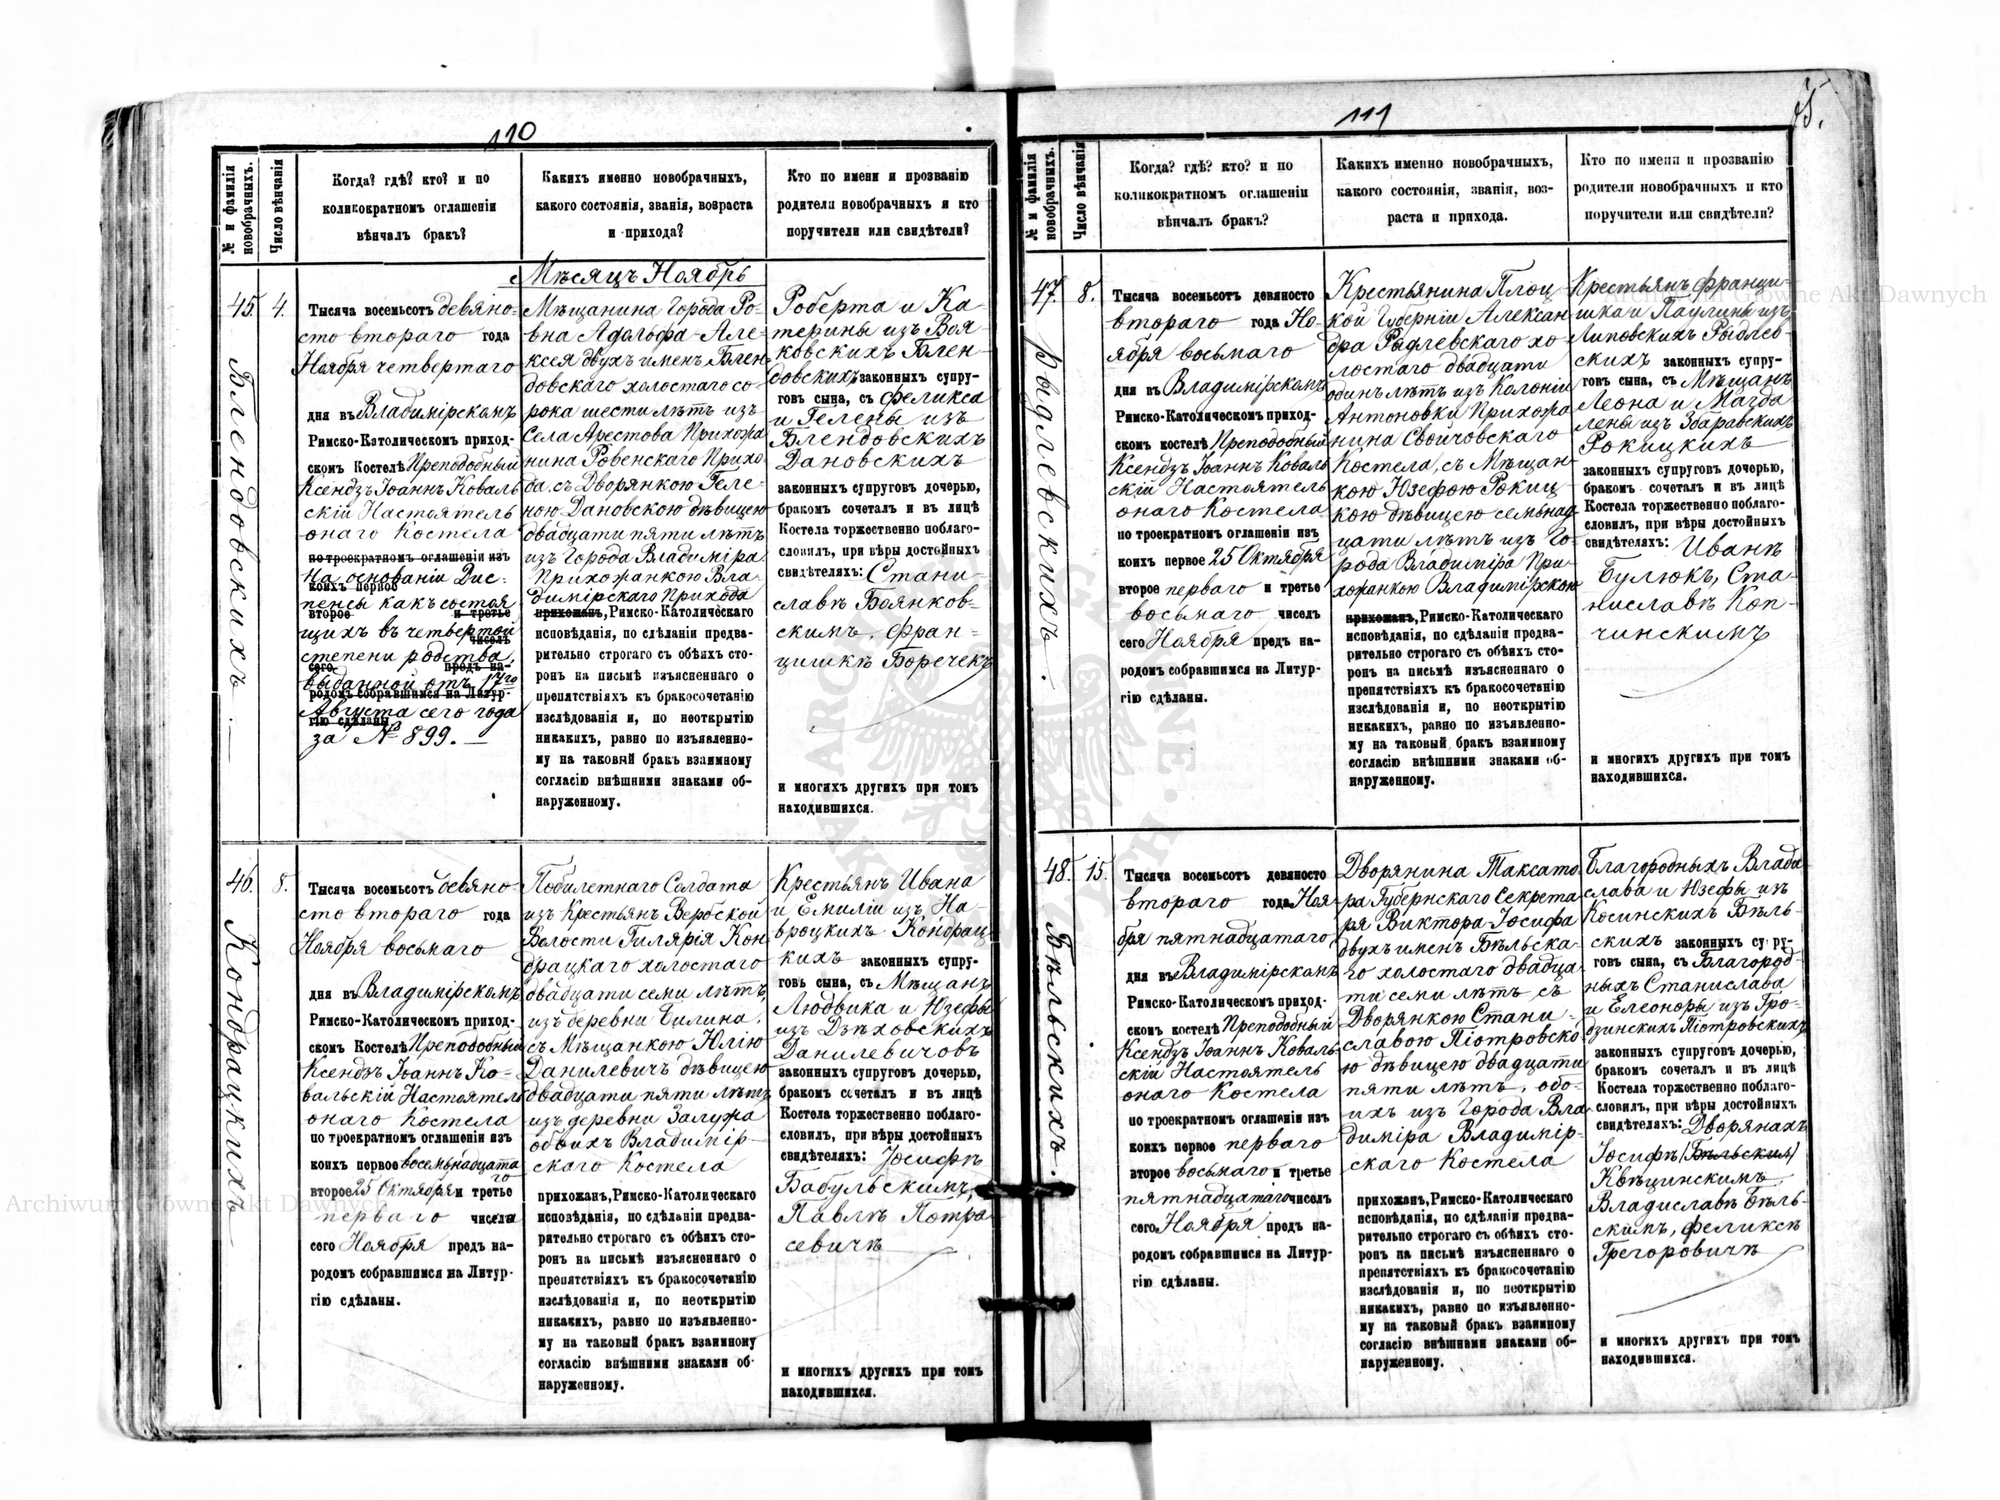 110
№ и фамилія новобрачныхъ.
Число вѣнчанія
Когда? гдѣ? кто? и по
коликократномъ оглашеніи
вѣнчалъ бракъ?
Какихъ именно новобрачныхъ,
какого состоянія, званія, возраста
и прихода?
Кто по имени и прозванію
родители новобрачныхъ и кто
поручители или свидѣтели?
Мѣсяцъ Ноябрь
45.
Блендовскихъ.
4.
Тысяча восемьсотъ девяно-
сто втораго года
Ноября четвертаго
дня въ Владимірскомъ
Римско-Католическомъ приход-
скомъ Костелѣ Преподобный
Ксендзъ Іоаннъ Коваль
скій Настоятель
онаго Костела
по троекратномъ оглашеніи изъ
На основаніи Дис-
коихъ первое
пенсы какъ состоя
второе и третье
щихъ въ четвертой
чиселъ
степени родства,
сего предъ на-
выданной отъ 17го
родомъ собравшимся на Литур-
Августа сего года
гію сдѣланы
за № 899. —
Мѣщанина Города Ро-
вна Адольфа-Але-
ксея двухъ именъ Блен
довскаго холостаго со-
рока шести лѣтъ изъ
Села Арестова Прихожа
нина Ровенскаго Прихо-
да, съ Дворянкою Геле-
ною Дановскою дѣвицею
двадцати пяти лѣтъ
изъ Города Владиміра
Прихожанкою Вла-
димірскаго Прихода
прихожанъ, Римско-Католическаго
исповѣданія, по сдѣланіи предва-
рительно строгаго съ обѣихъ сто-
ронъ на письмѣ изъясненнаго о
препятствіяхъ къ бракосочетанію
изслѣдованія и, по неоткрытію
никакихъ, равно по изъявленно-
му на таковый бракъ взаимному
согласію внѣшними знаками об-
наруженному.
Роберта и Ка-
терины изъ Воя
ковскихъ Блен-
довскихъ законныхъ супру-
говъ сына, съ Феликса
и Гелены изъ
Блендовскихъ
Дановскихъ
законныхъ супруговъ дочерью,
бракомъ сочеталъ и въ лицѣ
Костела торжественно поблаго-
словилъ, при вѣры достойныхъ
свидѣтеляхъ: Стани-
славѣ Боянков-
скимъ, Фран-
цишкѣ Боречекъ
и многихъ другихъ при томъ
находившихся.
46.
Кондрацкихъ
8.
Тысяча восемьсотъ девяно-
сто втораго года
Ноября восьмаго
дня въ Владимірскомъ
Римско-Католическомъ приход-
скомъ Костелѣ Преподобный
Ксендзъ Іоаннъ Ко-
вальскій Настоятель
онаго Костела
по троекратномъ оглашеніи изъ
коихъ первое восемьнадцата
го
второе 25 Октября и третье
перваго чиселъ
сего Ноября предъ на-
родомъ собравшимся на Литур-
гію сдѣланы.
Побилетнаго Солдата
изъ Крестьянъ Вербской
Волости Гилярія Кон
драцкаго холостаго
двадцати семи лѣтъ,
изъ деревни Билина,
съ Мѣщанкою Юлію
Данилевичъ дѣвицею
двадцати пяти лѣтъ
изъ деревни Залужа
обоихъ Владимір-
скаго Костела
прихожанъ, Римско-Католическаго
исповѣданія, по сдѣланіи предва-
рительно строгаго съ обѣихъ сто-
ронъ на письмѣ изъясненнаго о
препятствіяхъ къ бракосочетанію
изслѣдованія и, по неоткрытію
никакихъ, равно по изъявленно-
му на таковый бракъ взаимному
согласію внѣшними знаками об-
наруженному.
Крестьянъ Ивана
и Емиліи изъ На-
вроцкихъ Кондрац
кихъ законныхъ супру-
говъ сына, съ Мѣщанъ
Людвика и Юзефы
изъ Дзѣховскихъ
Данилевичовъ
законныхъ супруговъ дочерью,
бракомъ сочеталъ и въ лицѣ
Костела торжественно поблаго-
словилъ, при вѣры достойныхъ
свидѣтеляхъ: Іосифѣ
Бабульскимъ,
Павлѣ Потра
севичѣ
и многихъ другихъ при томъ
находившихся.
111
75.
№ и фамилія новобрачныхъ.
Число вѣнчанія
Когда? гдѣ? кто? и по
коликократномъ оглашеніи
вѣнчалъ бракъ?
Какихъ именно новобрачныхъ,
какого состоянія, званія, воз-
раста и прихода.
Кто по имени и прозванію
родители новобрачныхъ и кто
поручители или свидѣтели?
47.
Рыдлевскихъ.
8.
Тысяча восемьсотъ девяносто
втораго года Но-
ября восьмаго
дня въ Владимірскомъ
Римско-Католическомъ приход-
скомъ костелѣ Преподобный
Ксендзъ Іоаннъ Коваль
скій Настоятель
онаго Костела
по троекратномъ оглашеніи изъ
коихъ первое 25 Октября
второе перваго и третье
восьмаго чиселъ
сего Ноября предъ на-
родомъ собравшимся на Литур-
гію сдѣланы.
Крестьянина Плоц
кой Губерніи Алексан
дра Рыдлевскаго хо-
лостаго двадцати
одинъ лѣтъ изъ Колоніи
Антоновки Прихожа
нина Свойчовскаго
Костела, съ Мѣщан-
кою Юзефою Рокиц
кою дѣвицею семьнад
цати лѣтъ изъ Го-
рода Владиміра При-
хожанкою Владимірскою
прихожанъ, Римско-Католическаго
исповѣданія, по сдѣланіи предва-
рительно строгаго съ обѣихъ сто-
ронъ на письмѣ изъясненнаго о
препятствіяхъ къ бракосочетанію
изслѣдованія и, по неоткрытію
никакихъ, равно по изъявленно-
му на таковый бракъ взаимному
согласію внѣшними знаками об-
наруженному.
Крестьянъ Франци-
шка и Паулины изъ
Липовскихъ Рыдлев-
скихъ законныхъ супру-
говъ сына, съ Мѣщанъ
Леона и Магда
лены изъ Збаравскихъ
Рокицкихъ
законныхъ супруговъ дочерью,
бракомъ сочеталъ и въ лицѣ
Костела торжественно поблаго-
словилъ, при вѣры достойныхъ
свидѣтеляхъ: Иванѣ
Булюкъ, Ста-
ниславѣ Коп-
чинскимъ
и многихъ другихъ при томъ
находившихся.
48.
Бѣльскихъ.
15.
Тысяча восемьсотъ девяносто
втораго года Ноя-
бря пятнадцатаго
дня въ Владимірскомъ
Римско-Католическомъ приход-
скомъ костелѣ Преподобный
Ксендзъ Іоаннъ Коваль-
скій Настоятель
онаго Костела
по троекратномъ оглашеніи изъ
коихъ первое перваго
второе восьмаго и третье
пятнадцатаго чиселъ
сего Ноября предъ на-
родомъ собравшимся на Литур-
гію сдѣланы.
Дворянина Таксато
ра Губернскаго Секрета
ря Виктора-Іосифа
двухъ именъ Бѣльска-
го холостаго двадца-
ти семи лѣтъ съ
Дворянкою Стани-
славою Піотровско
ю дѣвицею двадцати
пяти лѣтъ, обо-
ихъ изъ Города Вла
диміра Владимір-
скаго Костела
прихожанъ, Римско-Католическаго
исповѣданія, по сдѣланіи предва-
рительно строгаго съ обѣихъ сто-
ронъ на письмѣ изъясненнаго о
препятствіяхъ къ бракосочетанію
изслѣдованія и, по неоткрытію
никакихъ, равно по изъявленно-
му на таковый бракъ взаимному
согласію внѣшними знаками об-
наруженному.
Благородныхъ Влади
слава и Юзефы изъ
Косинскихъ Бѣль-
скихъ законныхъ супру-
говъ сына, съ Благород-
ныхъ Станислава
и Елеоноры изъ Гро-
дзинскихъ Піотровскихъ
законныхъ супруговъ дочерью,
бракомъ сочеталъ и въ лицѣ
Костела торжественно поблаго-
словилъ, при вѣры достойныхъ
свидѣтеляхъ: Дворянахъ
Іосифѣ (Бѣльскимъ)
Квѣцинскимъ,
Владиславѣ Бѣль-
скимъ, Феликсѣ
Грегоровичѣ
и многихъ другихъ при томъ
находившихся.
Archiwum Główne Akt Dawnych
Archiwum Główne Akt Dawnych
ARCHIWUM GŁÓWNE AKT DAWNYCH